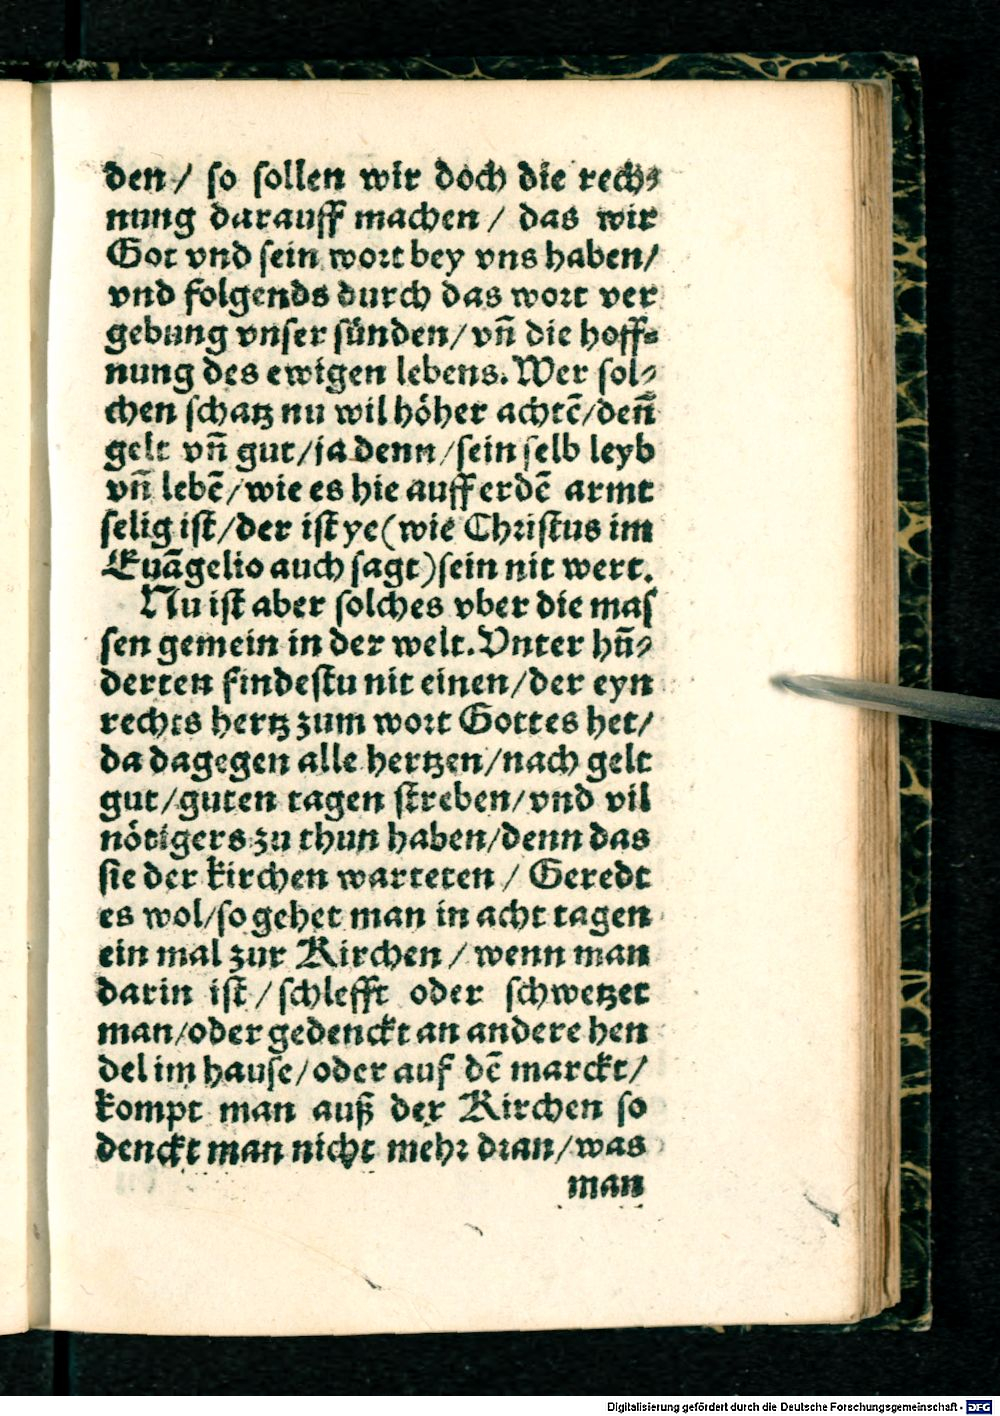 den / so sollen wir doch die rech⸗
nung darauff machen / das wir
Got vnd sein wort bey vns haben/
vnd folgends durch das wort ver
gebung vnser sünden/ vn̄ die hoff⸗
nung des ewigen lebens. Wer sol⸗
chen schatz nu wil höher achtē/denn̄
gelt vn̄ gut/ja denn/sein selb leyb
vn̄ lebē/wie es hie auff erdē armt
selig ist/der ist ye (wie Christus im
Euāgelio auch sagt) sein nit wert.
Nu ist aber solches vber die mas
sen gemein in der welt. Vnter hū⸗
derten findestu nit einen/der eyn
rechts hertz zum wort Gottes het/
da dagegen alle hertzen/nach gelt
gut/guten tagen streben/vnd vil
nötigers zu thun haben/denn das
sie der kirchen warteten / Geredt
es wol/so gehet man in acht tagen
ein mal zur Kirchen / wenn man
darin ist / schlefft oder schwetzet
man/oder gedenckt an andere hen
del im hause/oder auf dē marckt/
kompt man auß der Kirchen so
denckt man nicht mehr dran/was
man
Digitalisierung gefördert durch die Deutsche Forschungsgemeinschaft - DFG